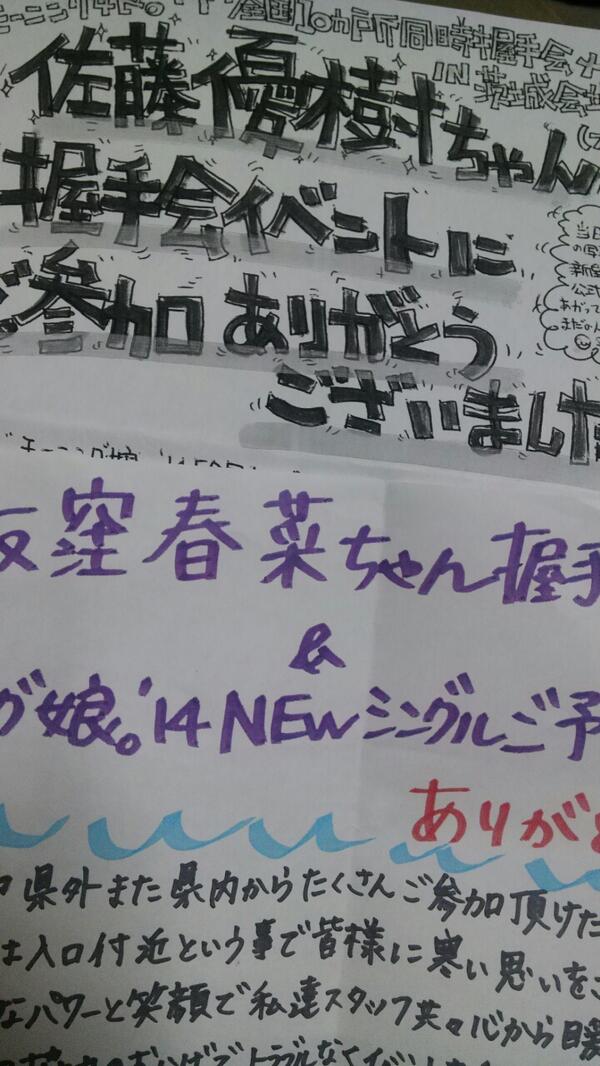 モーニング娘。'14 全国10カ所同時握手会
IN 茨城会場
佐藤優樹ちゃん
握手会イベントに
ご参加 ありがとう
ございました
当日
公式
あがって
モーニング娘。'14
窪春菜ちゃん握手
&
娘。'14 NEWシングルご予
ありが
県外また県内からたくさんご参加頂けた
は入口付近という事で皆様に寒い思いをさ
なパワーと笑顔で私達スタッフ共々心から暖
のおかげでトラブルなくイベント